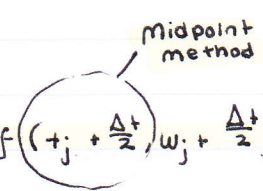 Midpoint
method
f(t_j + Δt/2, w_j + Δt/2